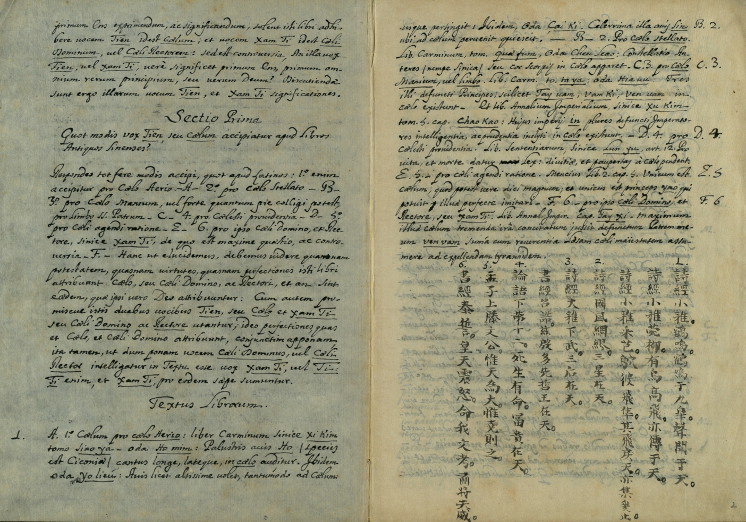 primum Ens exprimendum, ac significandum, solent isti libri adhi-
bere vocem Tien idest Cœlum; et vocem Xam Ti, idest Cœli
Dominum, vel Cœli Rectorem: sed est controversia. An illa vox
Tien, vel Xam Ti, verè significet primum Ens, primum om-
nium rerum principium, seu verum Deum? Discutiendæ
sunt ergo illarum vocum Tien, et Xam Ti significationes.
Sectio Prima
Quot modis vox Tien, seu Cœlum accipiatur apud libros
Antiquos Sinenses?
Respondeo tot fere modis accipi, quot apud Latinos: 1º enim
accipitur pro Cœlo Aereo - A - 2º pro Cœlo Stellato - B -
3º pro Cœlo Manium, vel forte quantum ex illis colligi potest,
pro limbo SS. Patrum. C - 4. pro Cœlesti providentia - D - 5º
pro cœli agendi ratione - E - 6. pro ipso Cœli Domino, et Rec-
tore, Sinice Xam Ti, de quo est maxime quæstio, ac contro-
versia - F - Hanc ut elucidemus, debemus videre quamnam
potestatem, quasnam virtutes, quasnam perfectiones isti libri
attribuant Cœlo, seu Cœli Domino, ac Rectori, et an sint
eædem, quas ipsi vero Deo attribuuntur: Cum autem pro-
miscue istis duabus vocibus Tien, seu Cœlo et Xam Ti
seu Cœli Domino ac Rectore utantur, ideo perfectiones quas
et Cœlo, et Cœli Domino attribuunt, conjunctim apponam
ita tamen, ut dum ponam vocem Cœli Dominus, vel Cœli
Rector intelligatur in Textu esse vox Xam Ti, vel Ti:
Ti enim, et Xam Ti, pro eodem sæpe sumuntur.
Textus Librorum.
1. A. 1º Cœlum pro cœlo Aereo: liber Carminum Sinice Xi Kim
tomo Siao ya - oda Ho mim: Palustris avis Ho [species
est Ciconiæ] cantus longe, lateque, in cœlo auditur. Ibidem
oda yo lieu: Avis licet altissime volet, tantumodo ad Cœlum
usque pertingit: Ibidem, Oda Cai Ki. Celerrima illa avis Sun
ubi ad cœlum pervenit quiescit. — B - 2. Pro Cœlo stellato. B. 2.
Lib. Carminum, tom. Quo fum, Oda Cheu Leao: Constellatio An-
tares [nempe Sinica] seu cor Scorpij in Cœlo apparet. C. 3. pro Cœlo C. 3.
Manium, vel limbo. Lib. Carm. to. ta ya, oda Hia vu: Tres
illi defuncti Principes, scilicet Tay vam, Van Ki, Ven vam in
cœlo existunt. - Et lib. Annalium Imperialium, Sinice Xu Kim -
tom. 5. cap. Chao Kao: Hujus imperij in plures defuncti Imperato-
res intelligentia, ac prudentia inclyti in Cœlo existunt. - D. 4. pro D. 4.
Cœlesti providentia: Lib. Sententiarum Sinice Lun yu, art. 12. Pro
vita, et morte datur Lex: divitiæ, et paupertas à cœlo pendent,
E. 5. - pro cœli agendi ratione. Mencius lib 2. cap. 5. Unicum est E. 5
cœlum, quod potest dici magnum, et unicus est princeps yao qui
potuit illud perfecte imitari. - F. 6 - pro ipso cœli Domino, et F. 6
Rectore, seu Xam Ti: Lib. Annal. Imper. Cap. Tay Xi - maximum
illud cœlum tremenda ira concitatum jussit defunctum Patrem me-
um Ven vam summa cum reverentia
mere ad expellendam tyrannidem.
1. 詩經小雅鶴鳴鶴鳴于九皋聲聞于天。
詩經小雅菀柳有鳥高飛亦傅于天。
詩經小雅采芑鴥彼飛隼其飛戾天亦集爰止。
2. 詩經國風綢繆三星在天。
3. 詩經大雅下武三后在天。
書經召誥茲殷多先哲王在天。
4. 論語下第十二死生有命富貴在天。
5. 孟子上滕文公惟天為大惟堯則之。
6. 書經泰誓皇天震怒命我文考肅將天威。